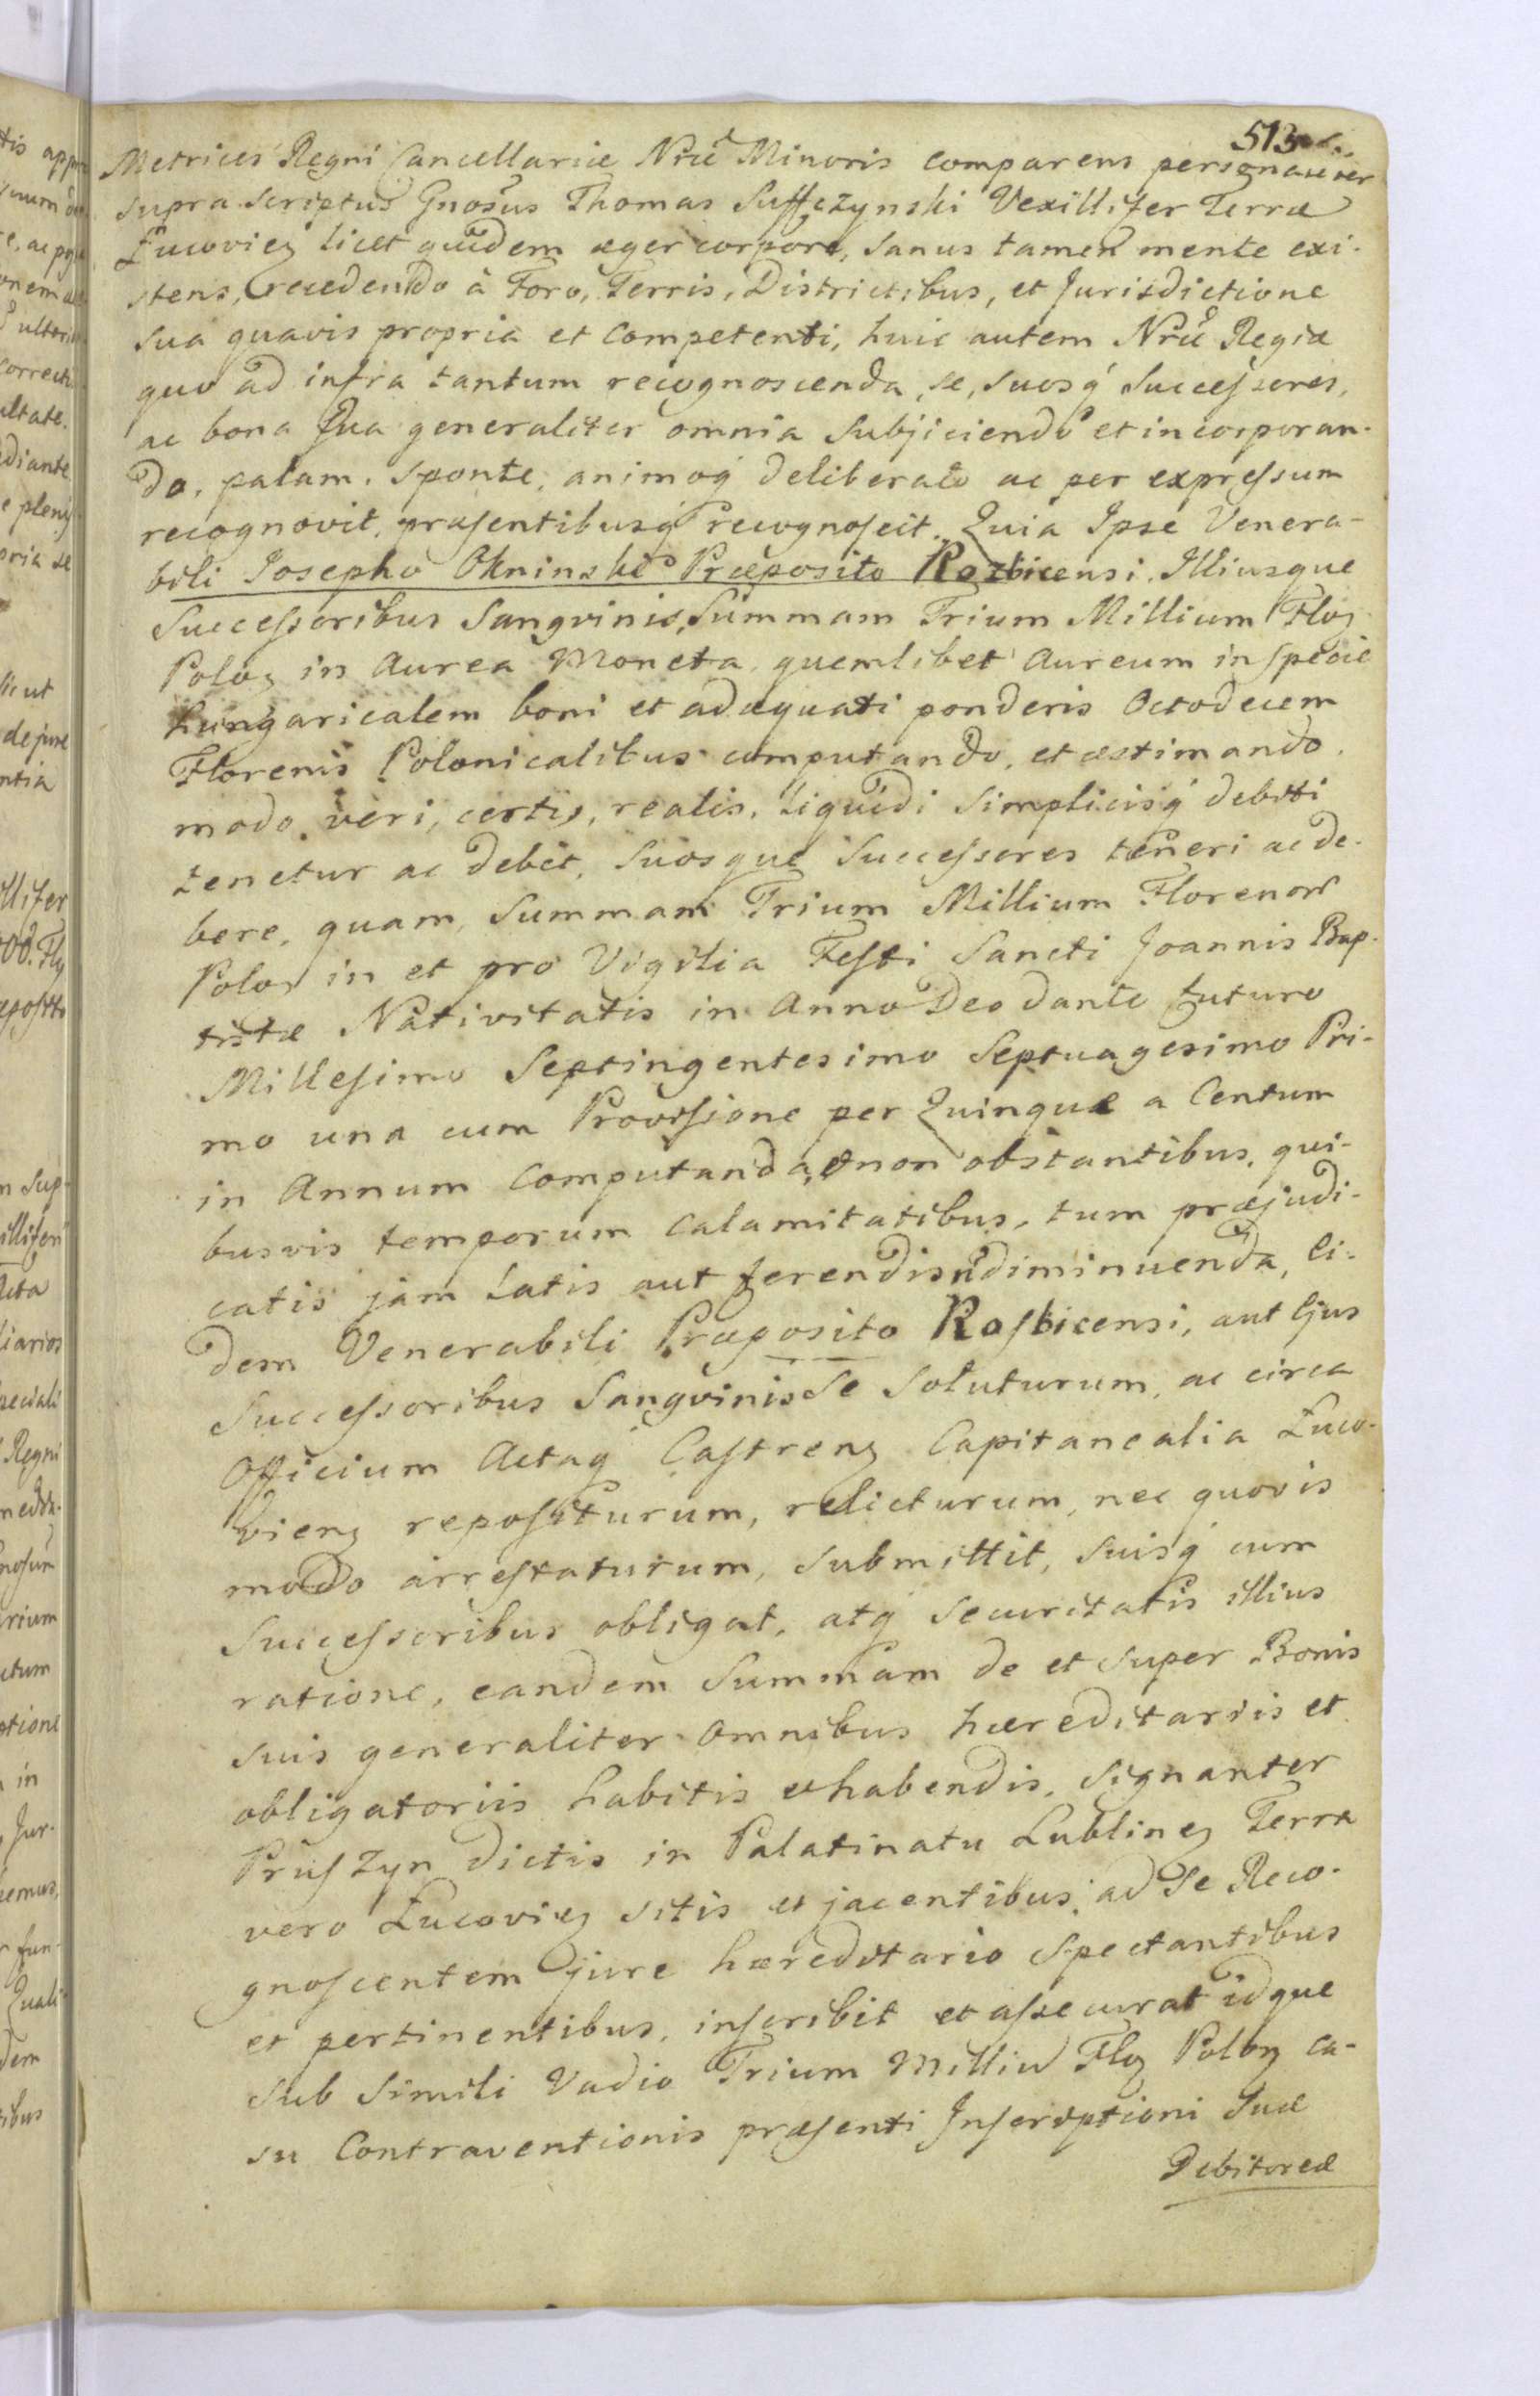 513
Metrices Regni Cancellariæ Nræ Minoris comparens personaliter
supra scriptus Gnosus Thomas Suffczynski Vexillifer Terræ
Łucovien licet quidem æger corpore, sanus tamen mente exi-
stens, recedendo à Foro, Terris, Districtibus, et Jurisdictione
sua quavis propria et competenti, huic autem Nræ Regiæ
quo ad infra tantum recognoscenda, se, suosq́ Successores,
ac bona sua generaliter omnia subjiciendo et incorporan-
do, palam, sponte, animoq́ deliberato ac per expressum
recognovit, præsentibusq́ recognoscit. Quia Ipse Venera-
bili Josepho Okninski Præposito Rozbicensi, Illiusque
Successoribus Sangvinis, Summam Trium Millium Floz
Poloz in Aurea Moneta, quemlibet Aureum in specie
hungaricalem boni et adæquati ponderis Octodecem
Florenis Polonicalibus computando, et æstimando,
modo veri, certis, realis, liquidi simplicisq́ debiti
tenetur ac debet, suosque Successores teneri ac de-
bere, quam Summam Trium Millium Florenor
Polor in et pro Vigilia Festi Sancti Joannis Bap-
tistæ Nativitatis in Anno Deo dante futuro
Millesimo Septingentesimo Septuagesimo Pri-
mo una cum Provisione per Quinque a Centum
in Annum computanda, non obstantibus, qui-
busvis temporum calamitatibus, tum præjudi-
catis jam latis aut ferendis diminuenda, ei-
dem Venerabili Præposito Rosbicensi, aut Ejus
Successoribus Sangvinis Se soluturum, ac circa
Officium Actaq́ Castrenz Capitanealia Łuco-
vienz repositurum, relicturum, nec quovis
modo arrestaturum, submittit, suisq́ cum
Successoribus obligat, atq́ securitatis illius
ratione, eandem Summam de et super Bonis
suis generaliter omnibus hæreditariis et
obligatoriis habitis et habendis, signanter
Pruszyn dictis in Palatinatu Lublinez Terra
vero Łucoviez sitis et jacentibus, ad Se Reco-
gnoscentem jure hæreditario spectantibus
et pertinentibus, inscribit et assecurat idque
sub simili Vadio Trium Milliu Floz Poloz ca-
su Contraventionis præsenti Inscriptioni suæ
Debitoreæ